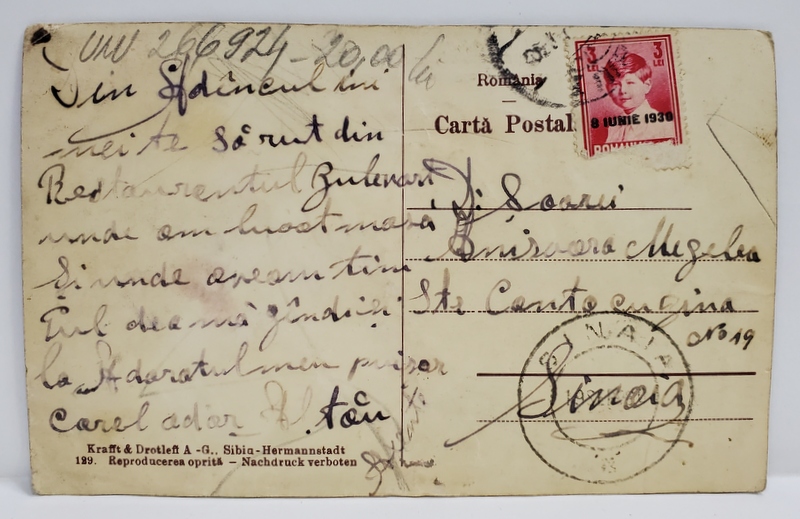 UNV 266924 - 20,00 lei
Din Adîncul ini
mei te sărut din
Restaurentul Bulevard
unde am luoat masa
Și unde aveam tim
Pul dea mă gîndi și
la Adoratul meu puișor
Carel ador Al tău
Krafft & Drotleff A.-G., Sibiu-Hermannstadt
129. Reproducerea oprită – Nachdruck verboten
România
Cartă Postală
3 LEI 3 LEI
8 IUNIE 1930
ROMANIA
D. Șoarei
Anișoara Megelea
Str Cantacuzino
No 19
Sinaia
SINAIA